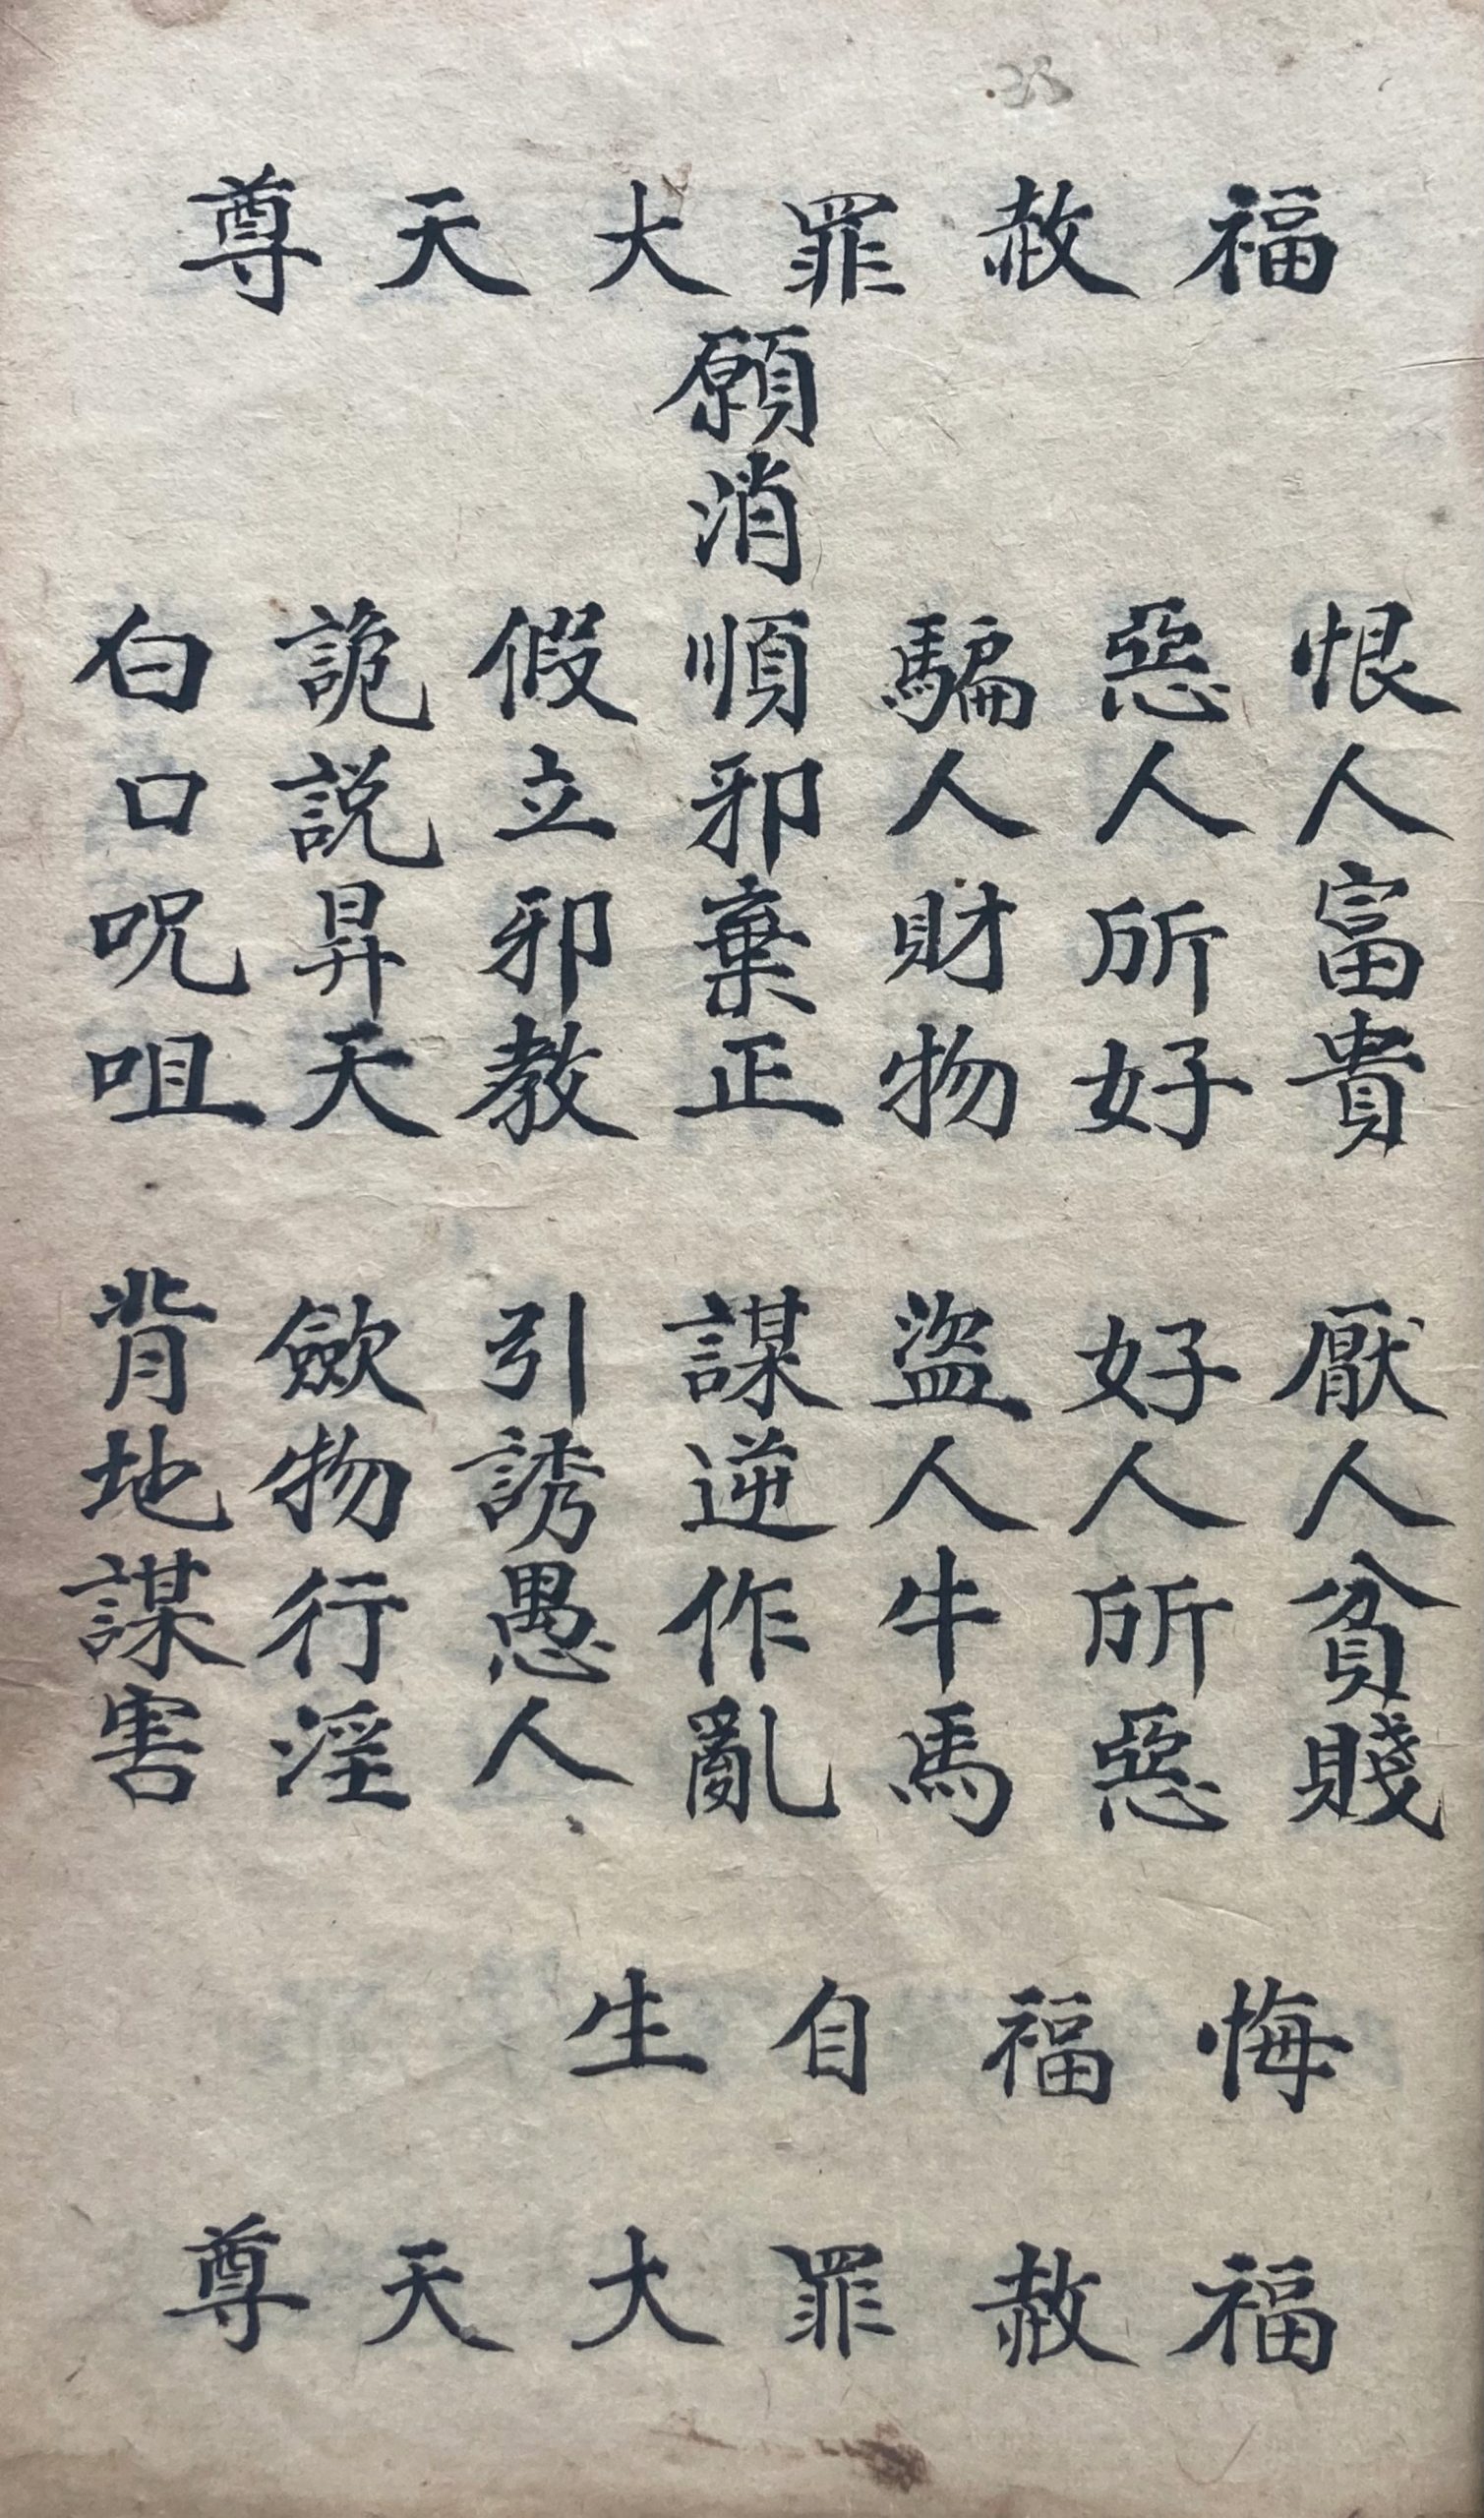 福赦罪大天尊
願消
恨人富貴
惡人所好
騙人財物
順邪棄正
假立邪教
詭説昇天
白口呪咀
厭人貧賤
好人所惡
盜人牛馬
謀逆作亂
引誘愚人
歛物行淫
背地謀害
悔福自生
福赦罪大天尊